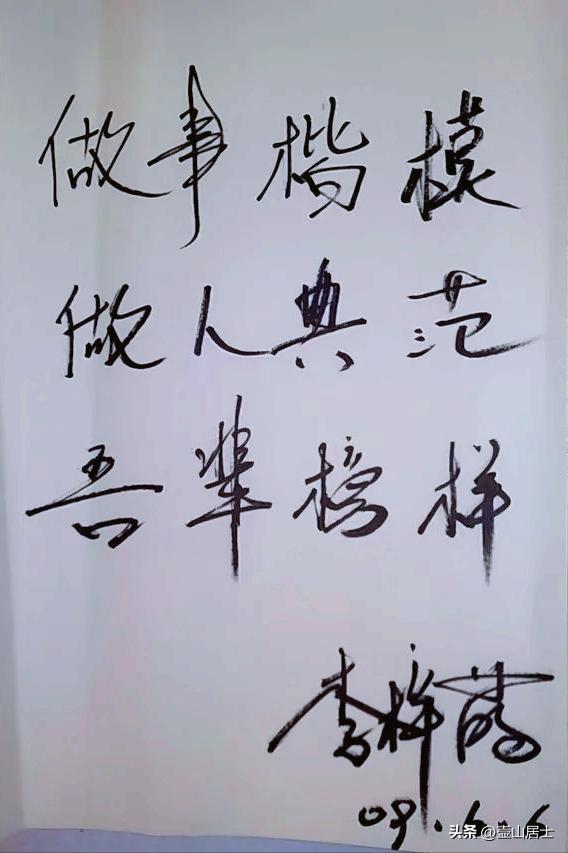 做事楷模
做人典范
吾辈榜样
李
09.6.6
头条 @壶山居士